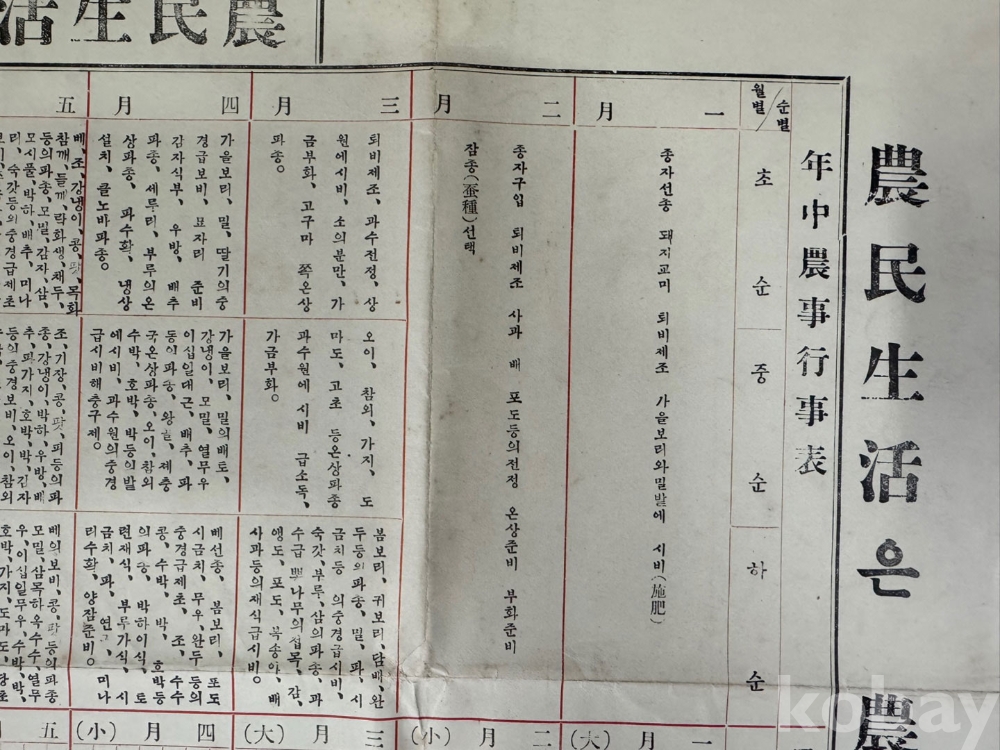 農民生活
農民生活은
農
年中農事行事表
순별
월별
초순
중순
하순
一月
종자선종 돼지교미 퇴비제조 가을보리와밀밭에 시비(施肥)
二月
종자구입 퇴비제조 사과 배 포도등의전정 온상준비 부화준비
잠종(蚕種)선택
三月
퇴비제조、과수전정、상
원에시비、소의분만、가
금부화、고구마 쪽온상
파종。
오이、참외、가지、도
마도、고초 등온상파종
과수원에 시비 급소독、
가금부화。
봄보리、귀보리、담배、완
두등의파종、밀、파、시
금치등 의중경급시비、
숙갓、부루、삼의파종、과
수급뽕나무의접목、감、
앵도、포도、복송아、배
사과등의재식급시비。
四月
가을보리、밀、딸기의중
경급보비、묘자리 준비
감자식부、우방、배추
파종、세루리、부루의온
상파종、파수확、냉상
설치、클노바파종。
가을보리、밀의배토、
강냉이、모밀、열무우
이십일대근、배추、파
동이파종、왕 제충
국온상파종、오이、참외
수박、호박、박등의발
에시비、과수원의중경
급시비해충구제。
베선종、봄보리、포도
시금치、무우、완두등의
중경급제초、조、수수
콩、수박、박、호박등
의파종、박하이식、토
련재식、부루가식、시
금치、파、연 미나
리수확、양잠준비。
五月
베、조、강냉이、콩、팟、목화
참깨、들깨、락화생、채두、
등의파종、모밀、감자、삼、
모시풀、박하、배추、미나
리、숙갓등의중경급제초
조、기장、콩、팟、피등의파
종、강냉이、박하、우방、배
추、파가지、호박、박、감자
등의중경보비、오이、참외
베의보비、콩、팟등의파종
모밀、삼목하、옥수수、열무
우、이십일무우、수박、박、
호박、가지、도마도、당초
一月(大)
二月(小)
三月(大)
四月(小)
五月
kobay